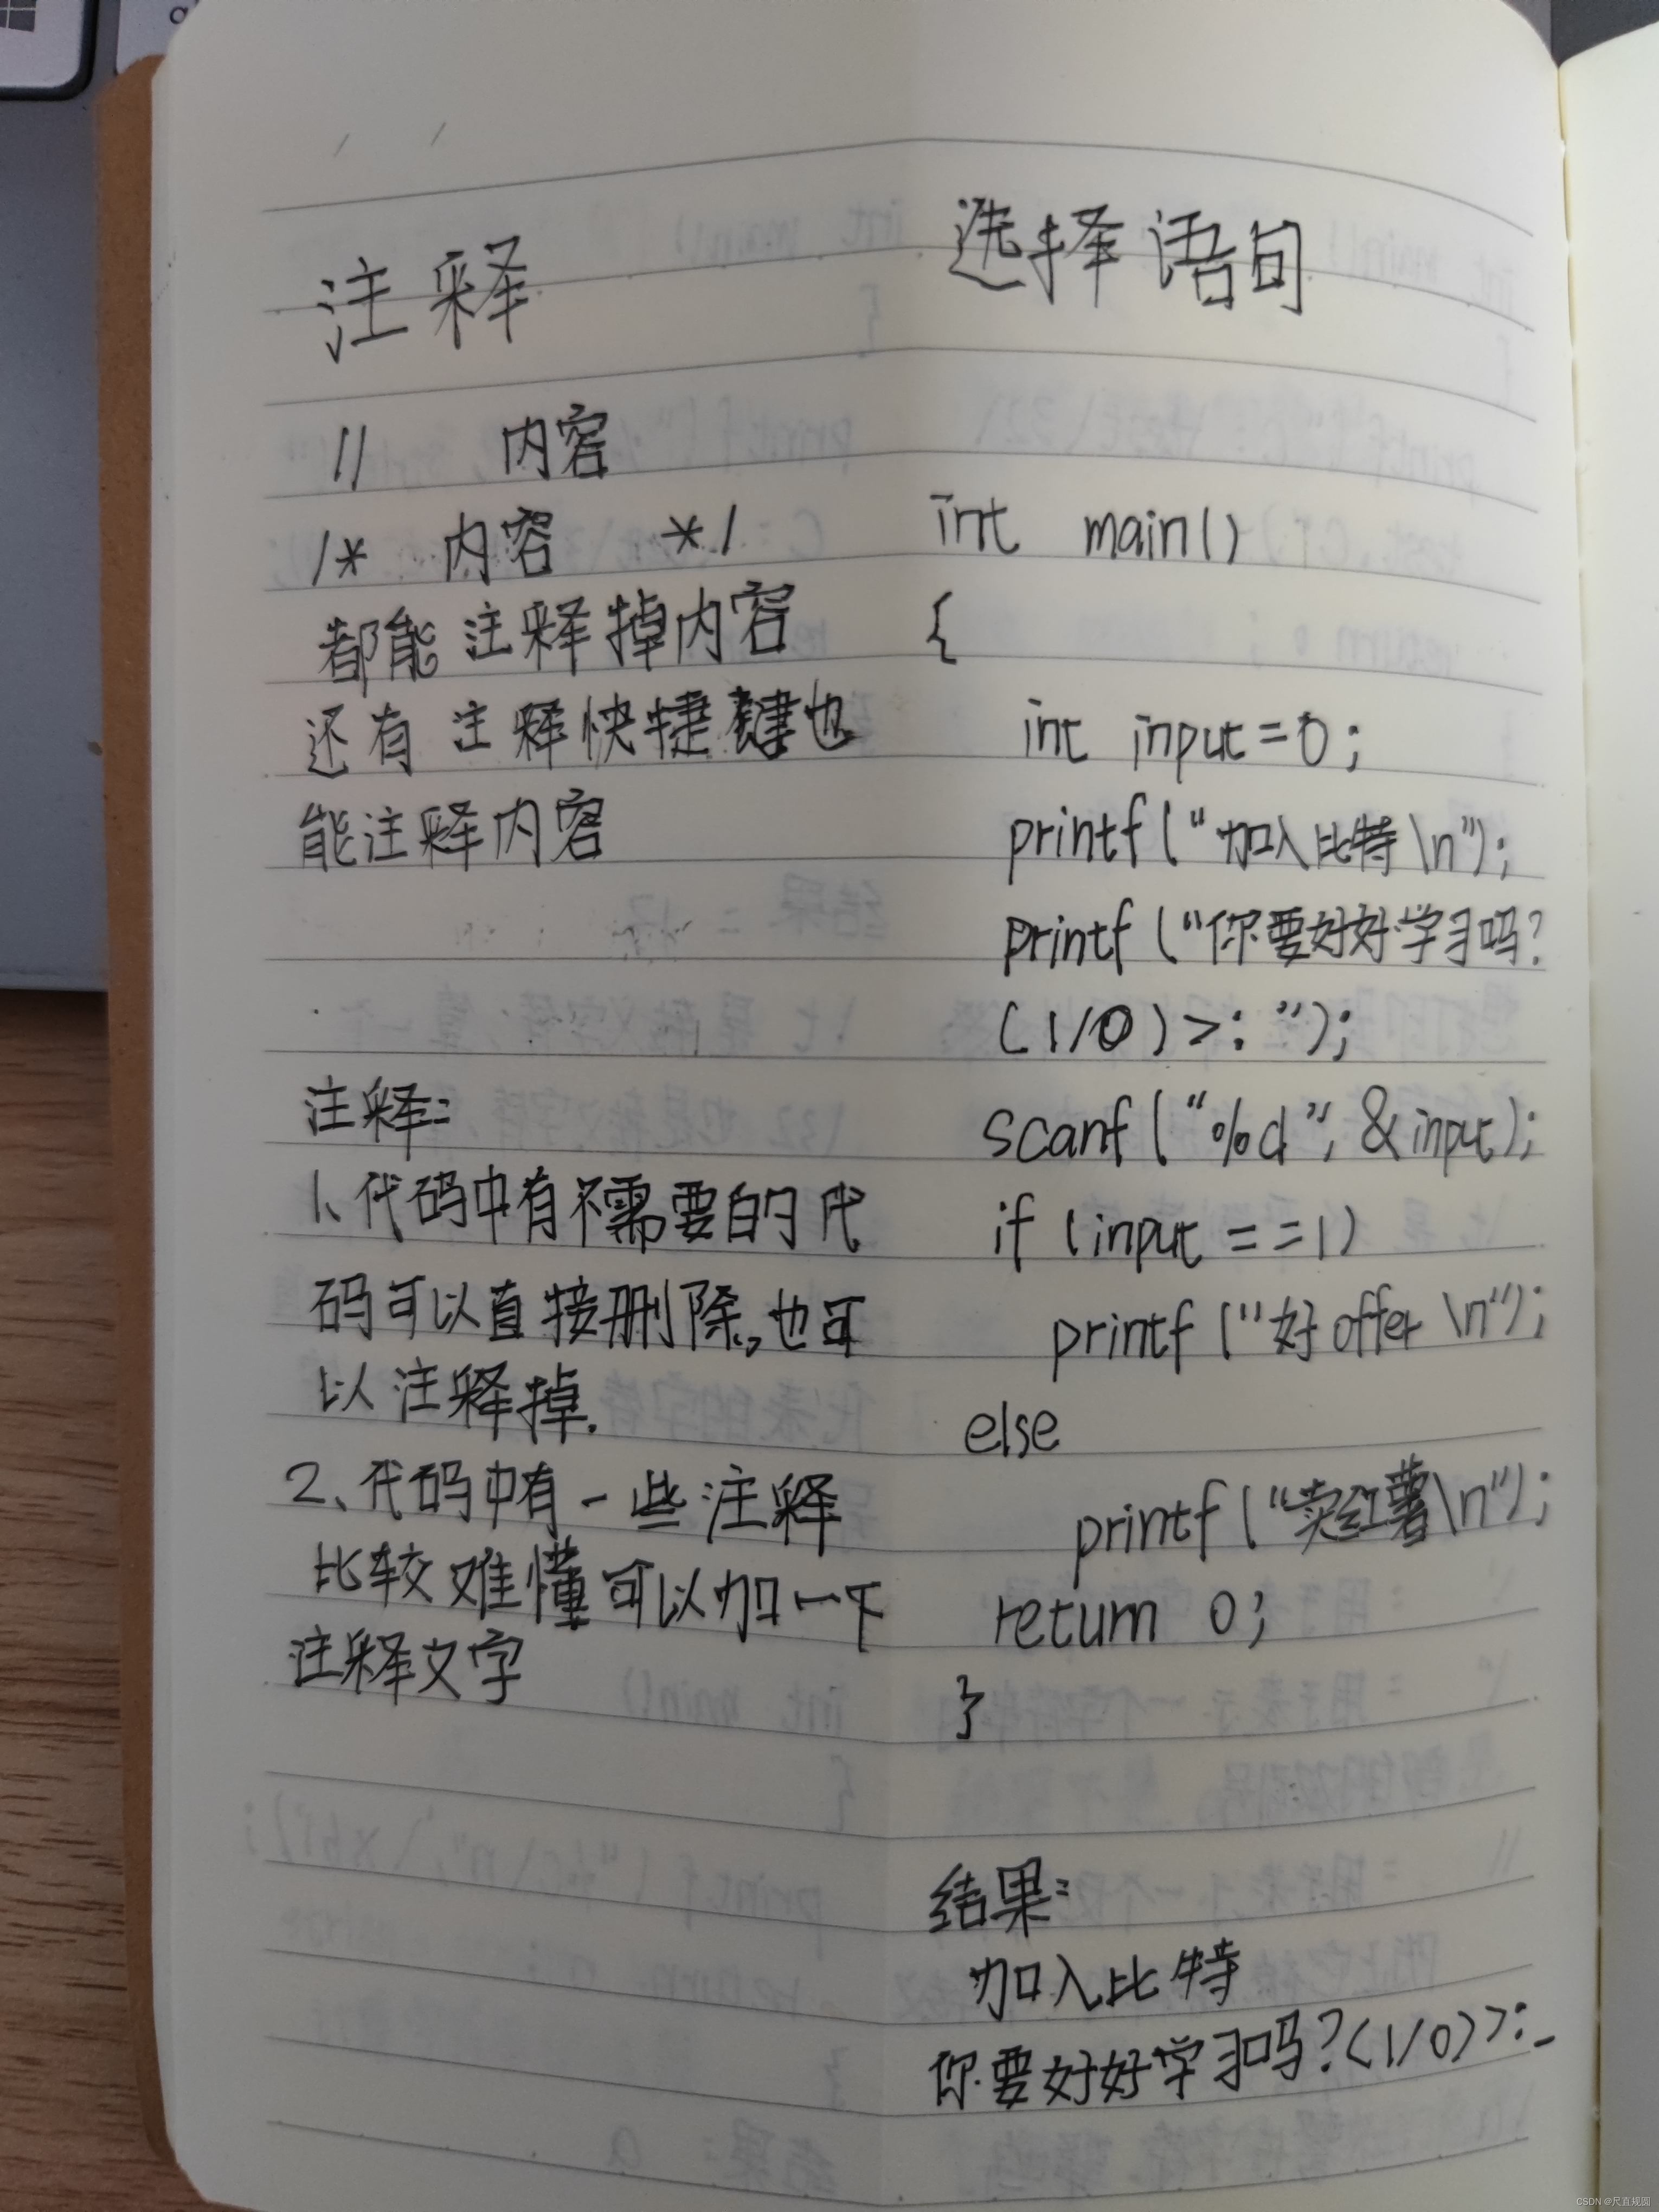 注释
// 内容
/* 内容 */
都能注释掉内容
还有注释快捷键也
能注释内容
注释:
1、代码中有不需要的代
码可以直接删除,也可
以注释掉.
2、代码中有一些注释
比较难懂可以加一下
注释文字
选择语句
int main()
{
int input=0;
printf("加入比特\n");
printf("你要好好学习吗?
(1/0)>:");
scanf("%d", &input);
if (input ==1)
printf("好offer \n");
else
printf("卖红薯\n");
return 0;
}
结果:
加入比特
你要好好学习吗?(1/0)>:_
CSDN @尺直规圆